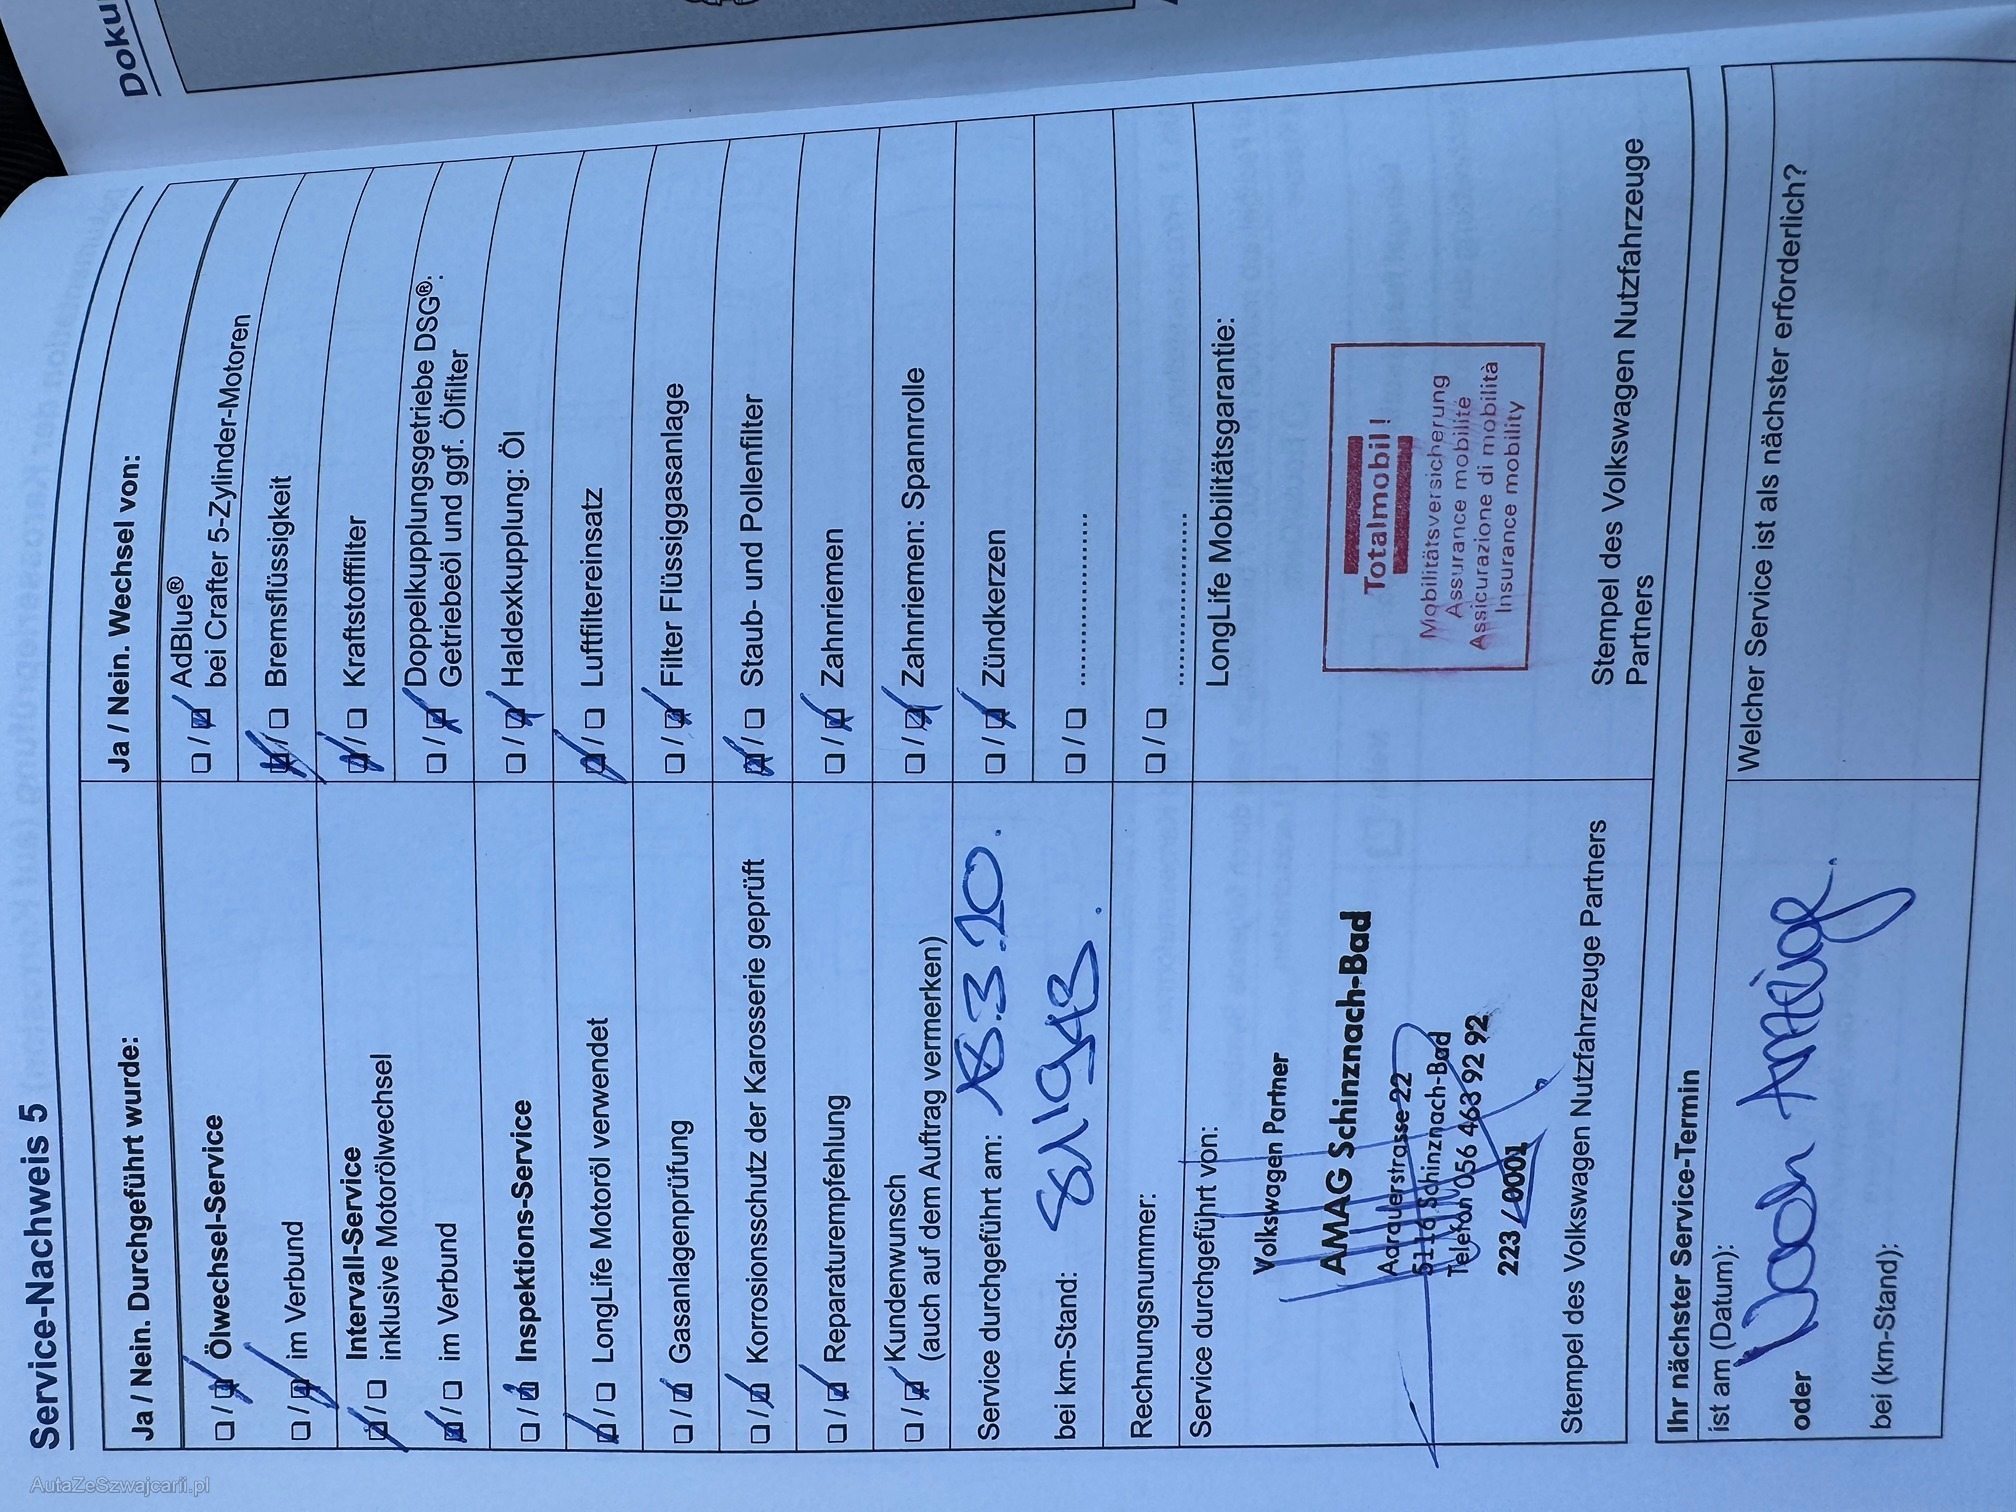 Service-Nachweis 5
Ja / Nein. Durchgeführt wurde:
Ölwechsel-Service
im Verbund
Intervall-Service
inklusive Motorölwechsel
im Verbund
Inspektions-Service
LongLife Motoröl verwendet
Gasanlagenprüfung
Korrosionsschutz der Karosserie geprüft
Reparaturempfehlung
Kundenwunsch
(auch auf dem Auftrag vermerken)
Service durchgeführt am:
bei km-Stand:
Rechnungsnummer:
Service durchgeführt von:
Volkswagen Partner
AMAG Schinznach-Bad
Aarauerstrasse 22
5116 Schinznach-Bad
Telefon 056 463 92 92
223/0001
Stempel des Volkswagen Nutzfahrzeuge Partners
Ja / Nein. Wechsel von:
AdBlue®
bei Crafter 5-Zylinder-Motoren
Bremsflüssigkeit
Kraftstofffilter
Doppelkupplungsgetriebe DSG®:
Getriebeöl und ggf. Ölfilter
Haldexkupplung: Öl
Luftfiltereinsatz
Filter Flüssiggasanlage
Staub- und Pollenfilter
Zahnriemen
Zahnriemen: Spannrolle
Zündkerzen
LongLife Mobilitätsgarantie:
Totalmobil!
Mobilitätsversicherung
Assurance mobilité
Assicurazione di mobilità
Insurance mobility
Stempel des Volkswagen Nutzfahrzeuge
Partners
Ihr nächster Service-Termin
ist am (Datum):
Nach Anzeige.
oder
bei (km-Stand):
Welcher Service ist als nächster erforderlich?
Doku
AutaZeSzwajcarii.pl